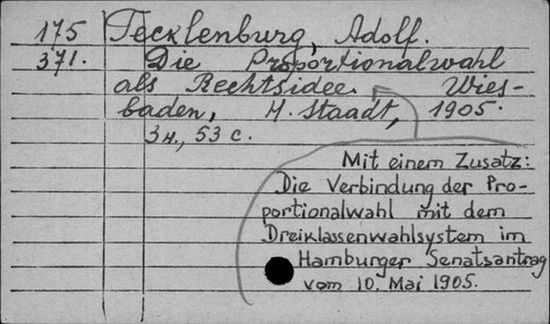 175 Tecklenburg, Adolf.
371. Die Proportionalwahl
als Rechtsidee. Wies-
baden, H. Staadt, 1905.
3н., 53 с.
Mit einem Zusatz:
Die Verbindung der Pro-
portionalwahl mit dem
Dreiklassenwahlsystem im
Hamburger Senatsantrag
vom 10. Mai 1905.